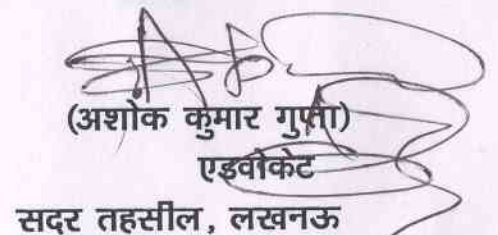 (अशोक कुमार गुप्ता)
एडवोकेट
सदर तहसील, लखनऊ